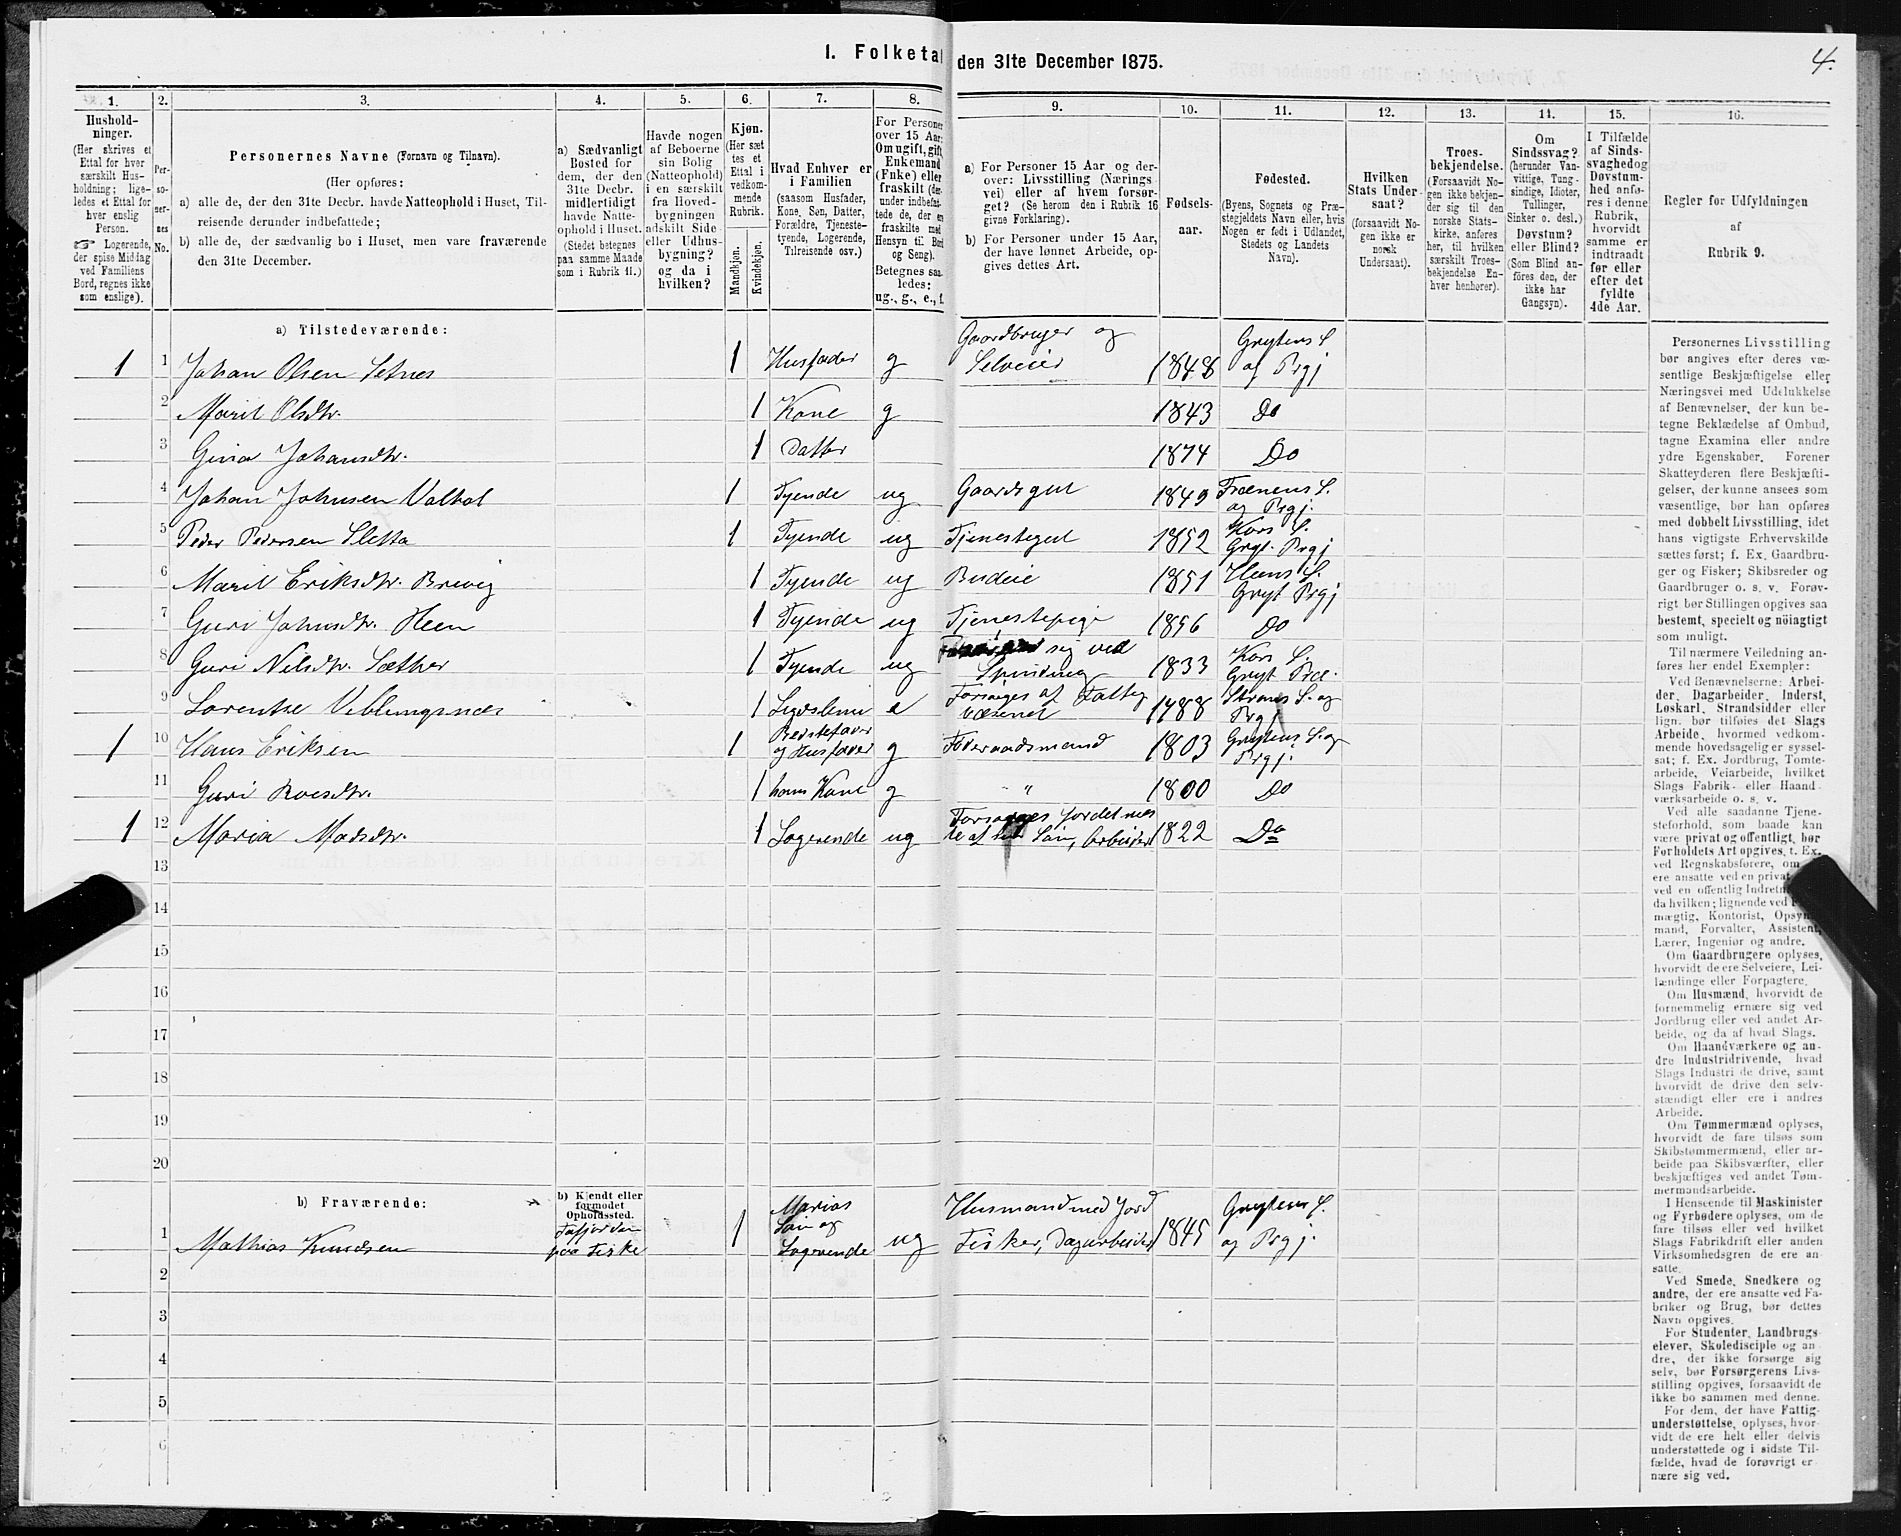 I. Folketal den 31te December 1875.
4.
1.
Hushold-
ninger.
(Her skrives et
Ettal for hver
særskilt Hus-
holdning; lige-
ledes et Ettal for
hver enslig
Person.
☞ Logerende,
der spise Middag
ved Familiens
Bord, regnes ikke
som enslige).
2.
Per-
so-
ner-
nes
No.
3.
Personernes Navne (Fornavn og Tilnavn).
(Her opføres:
a) alle de, der den 31te Decbr. havde Natteophold i Huset, Til-
reisende derunder indbefattede;
b) alle de, der sædvanlig bo i Huset, men vare fraværende
den 31te December.
4.
a) Sædvanligt
Bosted for
dem, der den
31te Decbr.
midlertidigt
havde Natte-
ophold i Huset.
(Stedet betegnes
paa samme Maade
som i Rubrik 11.)
5.
Havde nogen
af Beboerne
sin Bolig
(Natteophold)
i en særskilt
fra Hoved-
bygningen
adskilt Side-
eller Udhus-
bygning?
og da i
hvilken?
6.
Kjøn.
(Her sæt
tes et
Ettal i
vedkom-
mende
Rubrik.
Mandkjøn.
Kvindekjøn.
7.
Hvad Enhver er
i Familien
(saasom Husfader,
Kone, Søn, Datter,
Forældre, Tjeneste-
tyende, Logerende,
Tilreisende osv.)
8.
For Personer
over 15 Aar:
Om ugift, gift,
Enkemand
(Enke) eller
fraskilt (der-
under indbefat-
tede de, der ere
fraskilte med
Hensyn til Bord
og Seng).
Betegnes saa-
ledes:
ug., g., e., f.
9.
a) For Personer 15 Aar og der-
over: Livsstilling (Nærings-
vei) eller af hvem forsør-
get? (Se herom den i Rubrik 16
givne Forklaring).
b) For Personer under 15 Aar,
der have lønnet Arbeide, op-
gives dettes Art.
10.
Fødsels-
aar.
11.
Fødested.
(Byens, Sognets og Præ-
stegjeldets Navn eller, hvis
Nogen er født i Udlandet,
Stedets og Landets
Navn).
12.
Hvilken
Stats Under-
saat?
(forsaavidt No-
gen ikke er
norsk
Undersaat).
13.
Troes-
bekjendelse.
(Forsaavidt No-
gen ikke bekjen-
der sig til den
norske Stats-
kirke, anføres
her, til hvilken
særskilt Troes-
bekjendelse En-
hver henhører).
14.
Om
Sindssvag?
(herunder Van-
vittige, Tung-
sindige, Idioter,
Tullinger,
Sinker o. desl.)
Døvstum?
eller Blind?
(Som Blind an-
føres den, der
ikke har
Gangsyn).
15.
I Tilfælde
af Sinds-
svaghed og
Døvstum-
hed anfø-
res i denne
Rubrik,
hvorvidt
samme er
indtraadt
før eller
efter det
fyldte
4de Aar.
16.
Regler for Udfyldningen
af
Rubrik 9.
a) Tilstedeværende:
1 1 Johan Olsen Setnes 1 Husfader g Gaardbruger og Selveier 1848 Grytens S. af Prgj
2 Marit Olsdtr. 1 Kone g 1843 Do
3 Gina Johansdtr. 1 Datter 1874 Do
4 Johan Johnsen Voldal 1 Tyende ug Gaardsgut 1849 Frænens S. og Prgj.
5 Peder Pedersen Sletta 1 Tyende ug Tjenestegut 1852 Kors S. Gryt. Prgj
6 Marit Eriksdtr. Brevig 1 Tyende ug Budeie 1851 Heens S. Gryt Prgj
7 Guri Johnsdtr. Heen 1 Tyende ug Tjenestepige 1856 Do
8 Guri Nilsdtr. Sæther 1 Tyende ug sig ved Spinding 1833 Kors S. Gryt Præ.
9 Lorentse Veblungsnæs 1 Lægdslem e Forsørges af Fattigvæsenet 1788 S. og Prgj
1 10 Hans Eriksen 1 Bedstefader og Husfader g Føderaadsmand 1803 Grytens S. og Prgj.
11 Guri Roesdtr. 1 hans Kone g " 1800 Do
1 12 Maria Madsdtr. 1 Logerende ug Forsørges fordetmeste af sin Søn, Arbeider 1822 Do
13
14
15
16
17
18
19
20
b) Fraværende:
b) Kjendt eller
formodet
Opholdssted.
1 Mathias Knudsen paa Fiske 1 Marias Søn og Logerende ug Husmand med Jord Fisker, Dagarbeider 1845 Grytens S. og Prgj.
2
3
4
5
6
Personernes Livsstilling
bør angives efter deres væ-
sentlige Beskjæftigelse eller
Næringsvei med Udelukkelse
af Benævnelser, der kun be-
tegne Beklædelse af Ombud,
tagne Examina eller andre
ydre Egenskaber. Forener
Skatteyderen flere Beskjæfti-
gelser, der kunne ansees som
væsentlige, bør han opføres
med dobbelt Livsstilling, idet
hans vigtigste Erhvervskilde
sættes først; f. Ex. Gaardbru-
ger og Fisker; Skibsreder og
Gaardbruger o. s. v. Forøv-
rigt bør Stillingen opgives saa
bestemt, specielt og nöiagtigt
som muligt.
Til nærmere Veiledning an-
føres her endel Exempler:
Ved Benævnelserne: Arbei-
der, Dagarbeider, Inderst,
Løskarl, Strandsidder eller
lign. bør tilføies det Slags
Arbeide, hvormed vedkom-
mende hovedsagelig er syssel-
sat; f. Ex. Jordbrug, Tomte-
arbeide, Veiarbeide, hvilket
Slags Fabrik- eller Haand-
værksarbeide o. s. v.
Ved alle saadanne Tjene-
steforhold, som baade kan
være privat og offentligt, bør
Forholdets Art opgives, t. Ex.
ved Regnskabsførere, om
ere ansatte ved en privat
ved en offentlig Indretn
da hvilken; lignende ved
mægtig, Kontorist, Opsyns-
mand, Forvalter, Assistent,
Lærer, Ingeniør og andre.
Om Gaardbrugere oplyses,
hvorvidt de ere Selveiere, Lei-
lændinge eller Forpagtere.
Om Husmænd, hvorvidt de
fornemmelig ernære sig ved
Jordbrug eller ved andet Ar-
beide, og da af hvad Slags.
Om Haandværkere og an-
dre Industridrivende, hvad
Slags Industri de drive, samt
hvorvidt de drive den selv-
stændigt eller ere i andres
Arbeide.
Om Tømmermænd oplyses,
hvorvidt de fare tilsøs som
Skibstømmermænd, eller ar-
beide paa Skibsværfter, eller
beskjæftiges ved andet Tøm-
mermandsarbeide.
I Henseende til Maskinister
og Fyrbødere oplyses, om de
fare tilsøs eller ved hvilket
Slags Fabrikdrift eller anden
Virksomhedsgren de ere an-
satte.
Ved Smede, Snedkere og
andre, der ere ansatte ved Fa-
briker og Brug, bør dettes
Navn opgives.
For Studenter, Landbrugs-
elever, Skoledisciple og an-
dre, der ikke forsørge sig
selv, bør Forsørgerens Livs-
stilling opgives, forsaavidt de
ikke bo sammen med denne.
For dem, der have Fattig-
understøttelse, oplyses, hvor-
vidt de ere helt eller delvis
understøttede og i sidste Til-
fælde, hvad de forøvrigt er-
nære sig ved.